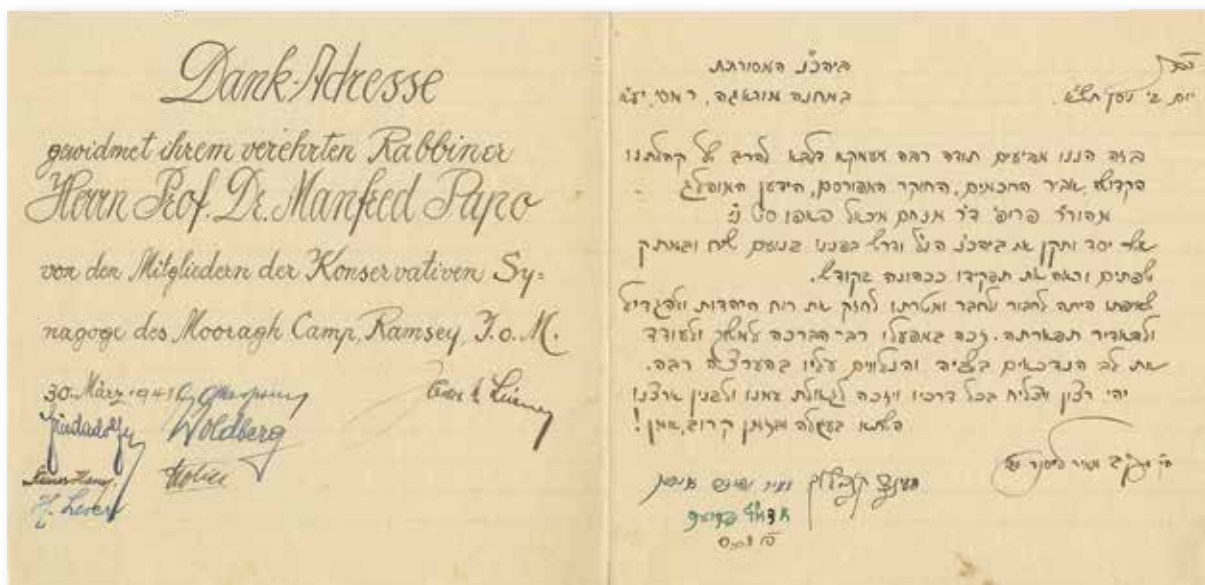 Dank-Adresse
gewidmet ihrem verehrten Rabbiner
Herrn Prof. Dr. Manfred Papo
von den Mitgliedern der Konservativen Sy=
nagoge des Mooragh Camp, Ramsey, I.o.M.
30. März 1941
Woldberg
H. Lever
ביהכ"נ המסורתית
במחנה מוראגה, רמסי, יע"א
יום ב' ניסן תש"א.
בזה הננו מביעים תודה רבה מעמקא דלבא להרב של קהלתנו
הקדושה אביר החכמים, החוקר המפורסם, הידען המופלג
מהור"ר פרופ' ד"ר מנחם מיכאל פאפו ס"ט נ"י
אשר יסד ותקן את ביהכ"נ הנ"ל ודרש בפנינו בנועם שיח ובמתק
שפתים וראה את תפקידו ככהונה בקודש.
שאיפתו היתה לחבור ולחבר ומטרתו לחזק את רוח היהדות ולהגדיל
ולהאדיר תפארתה. זכה במפעלו רב הברכה למשוך ולעודד
את לב הנדכאים בשביה והנלוים עליו בהערצה רבה.
יהי רצון שיצליח בכל דרכיו ויזכה לגאולת עמנו ולבנין ארצנו
השתא בעגלא ובזמן קרוב, אמן!